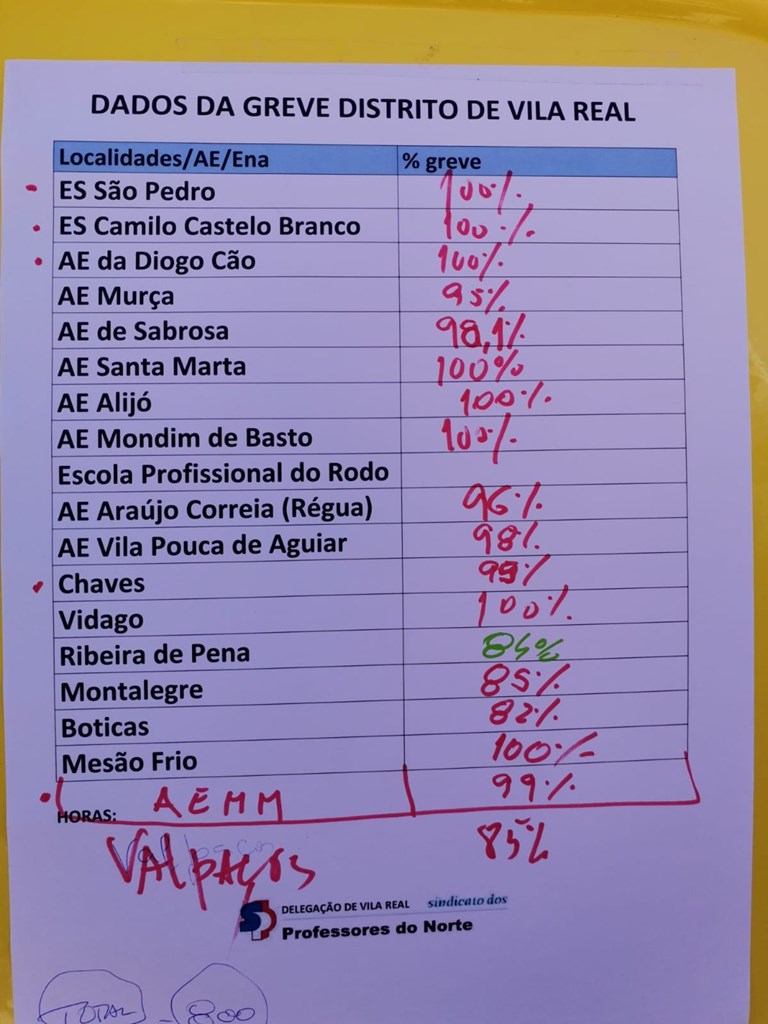 DADOS DA GREVE DISTRITO DE VILA REAL
Localidades/AE/Ena % greve
ES São Pedro 100%
ES Camilo Castelo Branco 100%
AE da Diogo Cão 100%
AE Murça 95%
AE de Sabrosa 98,1%
AE Santa Marta 100%
AE Alijó 100%
AE Mondim de Basto 100%
Escola Profissional do Rodo
AE Araújo Correia (Régua) 96%
AE Vila Pouca de Aguiar 98%
Chaves 99%
Vidago 100%
Ribeira de Pena 84%
Montalegre 85%
Boticas 82%
Mesão Frio 100%
AEMM 99%
HORAS:
VALPAÇOS 85%
DELEGAÇÃO DE VILA REAL sindicato dos
Professores do Norte
TOTAL - 800